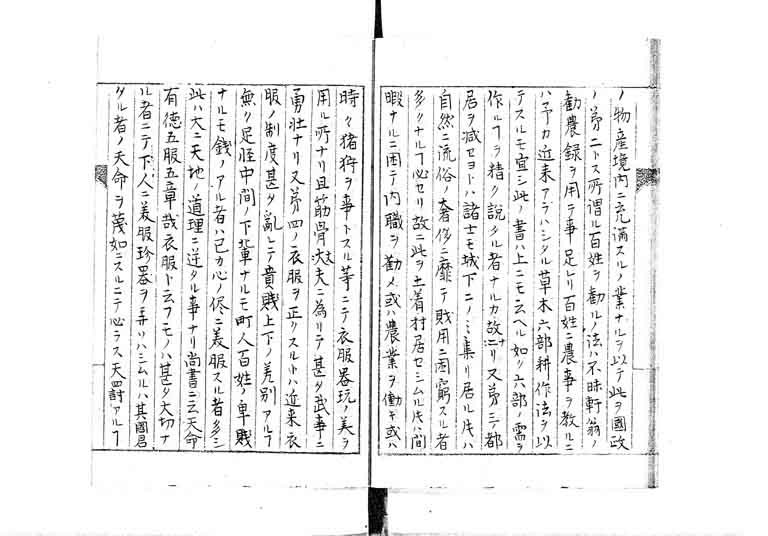 ノ物産境内ニ充満スルノ業ナルヲ以テ此ヲ國政
ノ第二トス所謂ル百姓ヲ勸ルノ法ハ不昧軒翁ノ
勸農録ヲ用ヲ事足レリ百姓ニ農事ヲ教ルニ
ハ予カ近来アラハシタル草木六部耕作法ヲ以
テスルモ宜シ此ノ書ハ上ニモ云ヘル如ク六部ノ需ヲ
作ルフヲ精ク説タル者ナルカ故ナリ又第三都
居ヲ减セヨトハ諸士モ城下ニノミ集リ居ル片ハ
自然ニ流俗ノ奢侈ニ靡テ財用ニ困窮スル者
多クナルフ必セリ故ニ此ヲ土着村居セシムル片ハ間
暇ナルニ困テ内職ヲ勸メ或ハ農業ヲ働キ或ハ
時々猪狩ヲ事トスル等ニテ衣服器玩ノ美ヲ
用ル所ナリ且筋骨丈夫ニ為リテ甚タ武事ニ
勇壮ナリ又第四ノ衣服ヲ正クスルトハ近来衣
服ノ制度甚タ亂レテ貴賎上下ノ差別アルフ
無ク足軽中間ノ下輩ナルモ町人百姓ノ卑賎
ナルモ銭ノアル者ハ己カ心ノ侭ニ美服スル者多シ
此ハ大ニ天地ノ道理ニ逆タル事ナリ尚書ニ云天命
有徳五服五章哉衣服ト云フモノハ甚タ大切ナ
ル者ニテ下人ニ美服珍器ヲ弄リハシムルハ其國君
タル者ノ天命ヲ蔑如ニスルニテ必ラス天四討アルフ